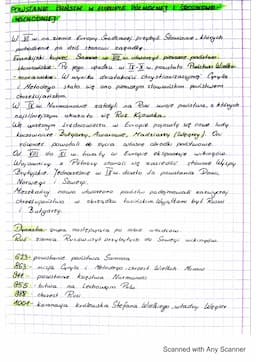 POWSTANIE PAŃSTW W EUROPIE PÓŁNOCNEJ I ŚRODKOWO-
WSCHODNIEJ
W VI w. na ziemie Europy Środkowej przybyli Słowianie, których
pochodzenie po dziś stanowi zagadkę.
Frankijski kupiec Samon w VII w. utworzył pierwsze państwo
słowiańskie. Po jego upadku w IX-X w. powstało Państwo Wielko-
morawskie. W wyniku działalności chrystianizacyjnej Cyryla
i Metodego stało się ono pierwszym słowiańskim państwem
chrześcijańskim.
W IX w. Normanowie założyli na Rusi wiele państw, z których
najsilniejszym okazała się Ruś Kijowska.
We wczesnym średniowieczu w Europie pojawiły się nowe ludy
koczownicze: Bułgarzy, Awarowie, Madziarzy (Węgrzy). Oni
również powołali do życia własne ośrodki państwowe.
Od VIII do XI w. trwały w Europie ekspansje wikingów.
Wojownicy z Północy oparali się wszędzie: stanowi Wyspy
Brytyjskie. Jednocześnie w IX w. doszło do powstania Danii,
Norwegii i Szwecji.
Mieszkańcy nowo utworzono państw podejmowali zazwyczaj
chrześcijaństwo w obrządku łacińskim. Wyjątkiem były Ruś
i Bułgarzy.
Dynastia - grupa następujących po sobie władców.
Ruś - ziemia Rurykowiczów przybyłych do Szwecji wikingów.
623 - powstanie państwa Samona
863 - misja Cyryla i Metodego, chrzest Wielkich Moraw
911 - powstanie księstwa Normandii
955 - bitwa na Lechowym Polu
988 - chrzest Rusi
1001 - koronacja królewska Stefana Wielkiego, władcy Węgier
Scanned with Any Scanner